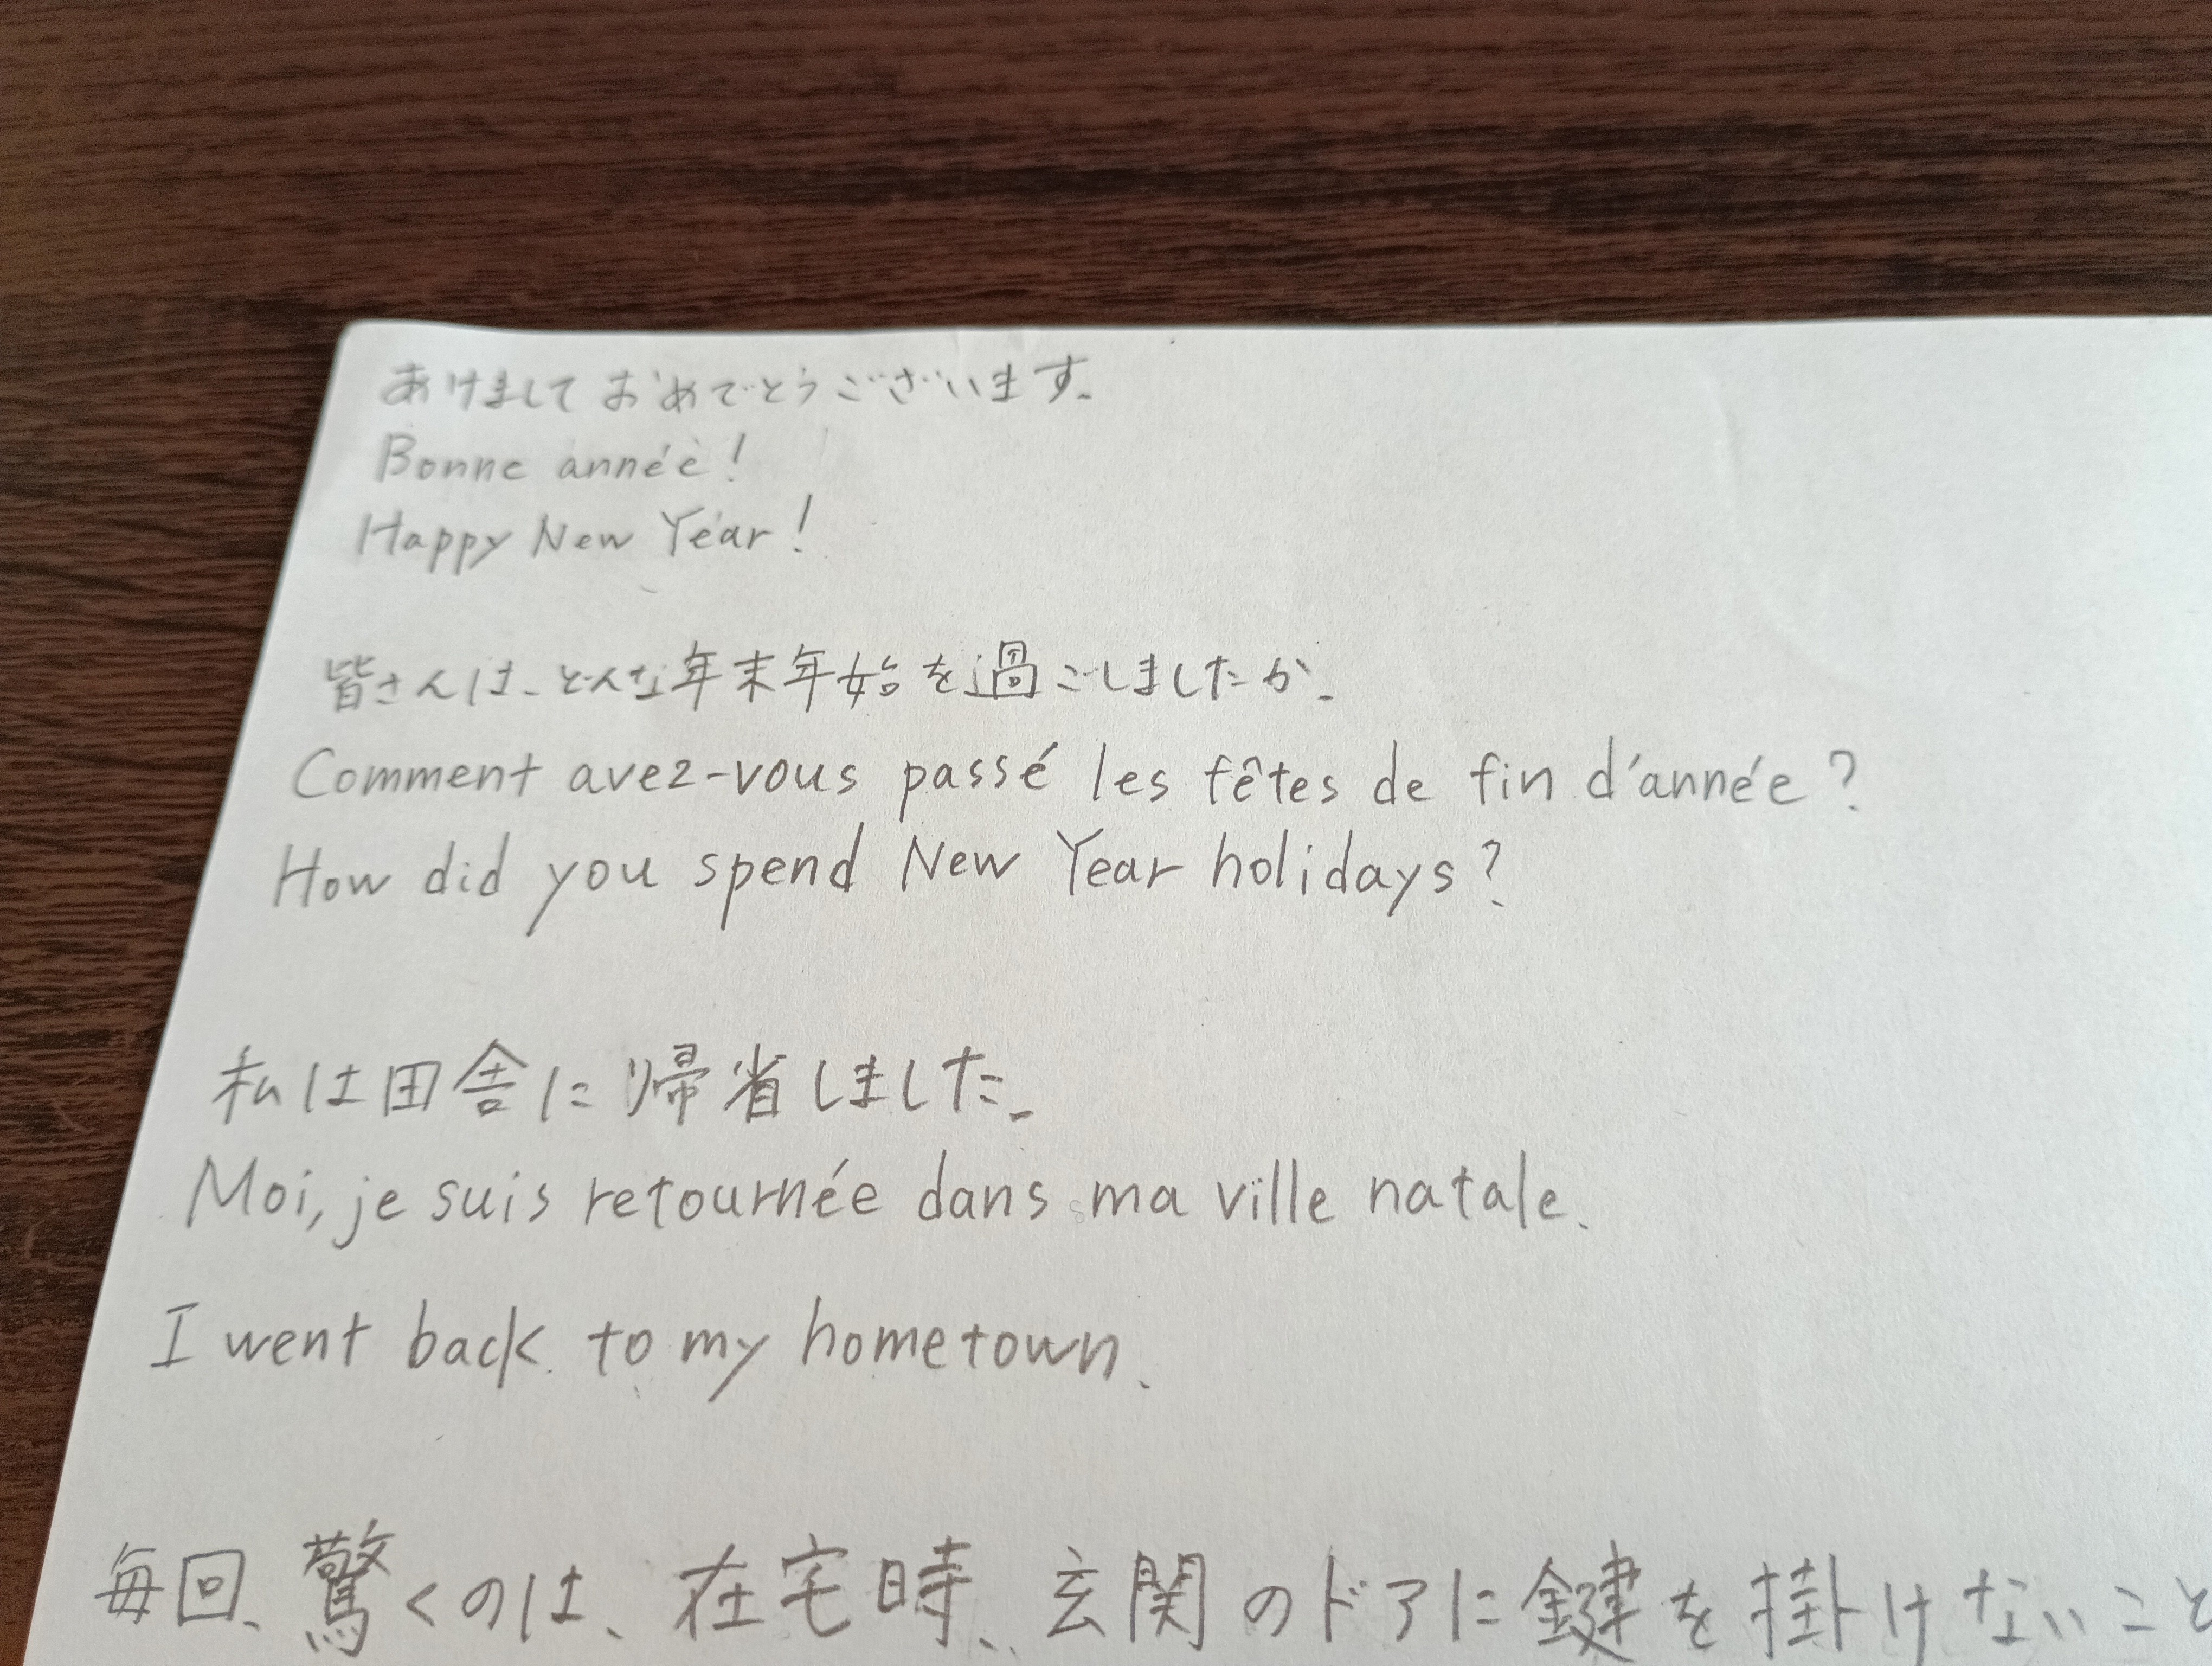 あけましておめでとうございます。
Bonne année!
Happy New Year!
皆さんは、どんな年末年始を過ごしましたか。
Comment avez-vous passé les fêtes de fin d'année?
How did you spend New Year holidays?
私は田舎に帰省しました。
Moi, je suis retournée dans ma ville natale.
I went back to my hometown.
毎回、驚くのは、在宅時、玄関のドアに鍵を掛けないこと